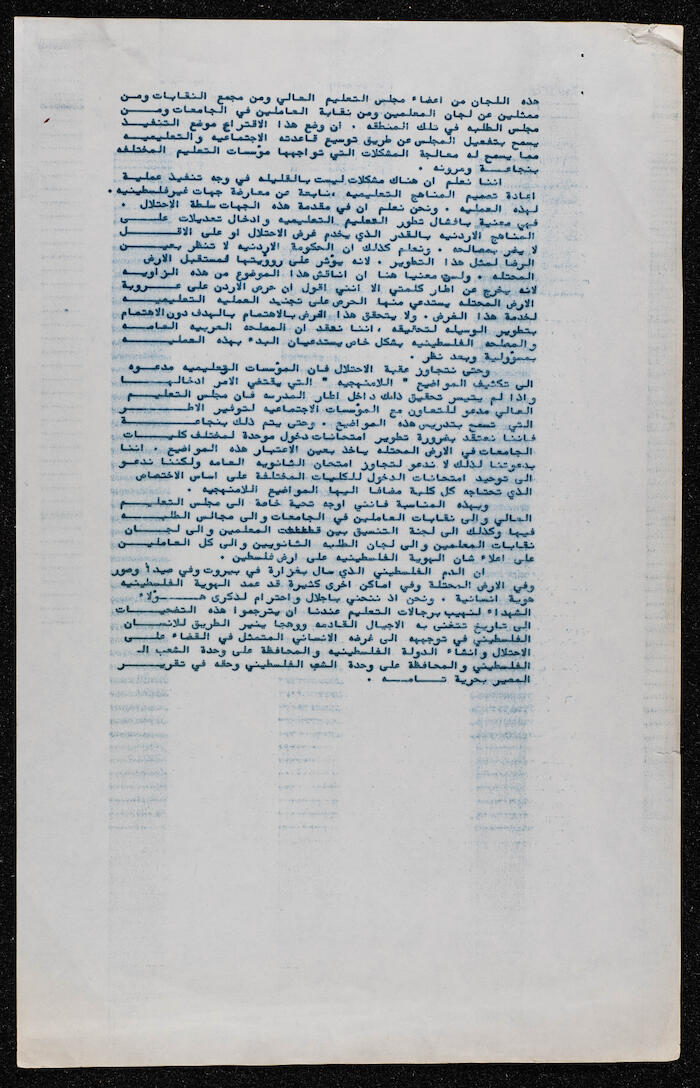 هذه اللجان من اعضاء مجلس التعليم العالي ومن مجمع النقابات ومن
ممثلين عن لجان المعلمين ومن نقابة العاملين في الجامعات ومن
مجلس الطلبه في تلك المنطقه . ان وضع هذا الاقتراح موضع التنفيذ
يسمح بتفعيل المجلس عن طريق توسيع قاعدته الاجتماعيه والتعليميه
مما يسمح له معالجة المشكلات التي تواجهها مؤسسات التعليم المختلفه
بنجاعة ومرونه .
اننا نعلم ان هناك مشكلات ليست بالقليله في وجه تنفيذ عملية
اعادة تصميم المناهج التعليميه ،نابتعة عن معارضة جهات غيرفلسطينيه
لهذه العمليه . ونحن نعلم ان في مقدمة هذه الجهات سلطة الاحتلال .
فهي معنية بافشال تطور التعليم التعليميه وادخال تعديلات على
المناهج الاردنيه بالقدر الذي يخدم غرض الاحتلال او على الاقل
لا يضر بمصالحه . ونعلم كذلك ان الحكومة الاردنيه لا تنظر بعين
الرضا لمثل هذا التطوير . لانه يؤثر على روؤيتها لمستقبل الارض
المحتله . ولست معنيا هنا ان اناقش هذا الموضوع من هذه الزاويه
لانه يخرج عن اطار كلمتي الا انني اقول ان حرص الأردن على عروبة
الارض المحتله يستدعي منها الحرص على تجنيد العمليه التعليميه
لخدمة هذا الغرض . ولا يتحقق هذا الغرض بالاهتمام بالهدف دون الاهتمام
بتطوير الوسيله لتحقيقه ،اننا نعتقد ان المصلحه العربيه العامه
والمصلحه الفلسطينيه بشكل خاص يستدعيان البدء بهذه العمليه
بمسؤولية وبعد نظر .
وحتى نتجاوز عقبة الاحتلال فان المؤسسات التعليميه مدعوه
الى تكثيف المواضيع " اللامنهجيه " التي يقتضي الامر ادخالها
واذا لم يتيسر تحقيق ذلك داخل اطار المدرسه فان مجلس التعليم
العالي مدعو للتعاون مع المؤسسات الاجتماعيه لتوفير الاطر
التي تسمح بتدريس هذه المواضيع . وحتى يتم ذلك بنجاعة
فاننا نعتقد بضرورة تطوير امتحانات دخول موحدة لمختلف كليات
الجامعات في الارض المحتله ياخذ بعين الاعتبار هذه المواضيع . اننا
بدعوتنا لذلك لا ندعو لتجاوز امتحان الثانويه العامه ولكننا ندعو
الى توحيد امتحانات الدخول للكليات المختلفة على اساس الاختصاص
الذي تحتاجه كل كلية مضافا اليها المواضيع اللامنهجيه .
وبهذه المناسبة فانني اوجه تحية خاصة الى مجلس التعليم
العالي والى نقابات العاملين في الجامعات والى مجالس الطلبه
فيها وكذلك الى لجنة التنسيق بين المعلمين والى لجان
نقابات المعلمين والى لجان الطلبه الثانويين والى كل العاملين
على اعلاء شان الهوية الفلسطينيه على ارض فلسطين .
ان الدم الفلسطيني الذي سال بغزارة في بيروت وفي صيدا وصور
وفي الارض المحتلة وفي اماكن اخرى كثيرة قد عمد الهوية الفلسطينيه
هوية انسانية . ونحن اذ ننحني باجلال واحترام لذكرى هؤلاء
الشهداء لنهيب برجالات التعليم عندنا ان يترجموا هذه التضحيات
الى تاريخ تتغنى به الاجيال القادمه ووهجا ينير الطريق للانسان
الفلسطيني في توجهه الى غرضه الانساني المتمثل في القضاء على
الاحتلال وانشاء الدولة الفلسطينيه والمحافظة على وحدة الشعب الـ
الفلسطيني والمحافظة على وحدة الشعب الفلسطيني وحقه في تقرير
المصير بحرية تامه .